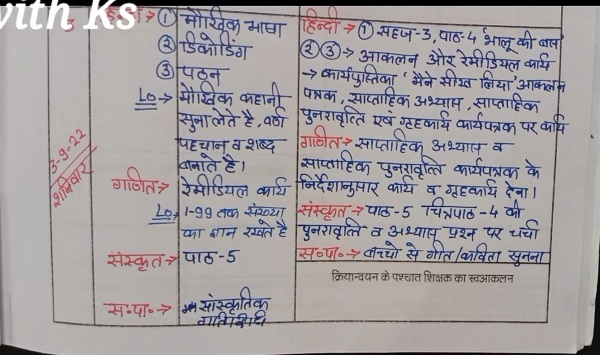 with Ks
3
3-9-22
शनिवार
हिन्दी→ ① मौखिक भाषा
② डिकोडिंग
③ पठन
LO→ मौखिक कहानी
सुना लेते है, वर्ण
पहचान व शब्द
बनाते है।
गणित→ रेमीडियल कार्य
LO→ 1-99 तक संख्या
का ज्ञान रखते है
संस्कृत→ पाठ-5
स॰पा॰→ सांस्कृतिक
गतिविधि
हिन्दी→ ① सहज-3, पाठ-4 'भालू की बस'
②③→ आकलन और रेमीडियल कार्य
→ कार्यपुस्तिका 'मैने सीख लिया' आकलन
पत्रक, साप्ताहिक अभ्यास, साप्ताहिक
पुनरावृत्ति एवं गृहकार्य कार्यपत्रक पर कार्य
गणित→ साप्ताहिक अभ्यास व
साप्ताहिक पुनरावृत्ति कार्यपत्रक के
निर्देशानुसार कार्य व गृहकार्य देना।
संस्कृत→ पाठ-5 चित्रपाठ-4 की
पुनरावृत्ति व अभ्यास प्रश्न पर चर्चा
स॰पा॰→ बच्चो से गीत/कविता सुनना
क्रियान्वयन के पश्चात शिक्षक का स्वआकलन